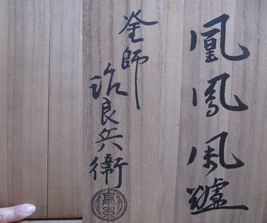 凰鳳風爐
釜師
治良兵衛